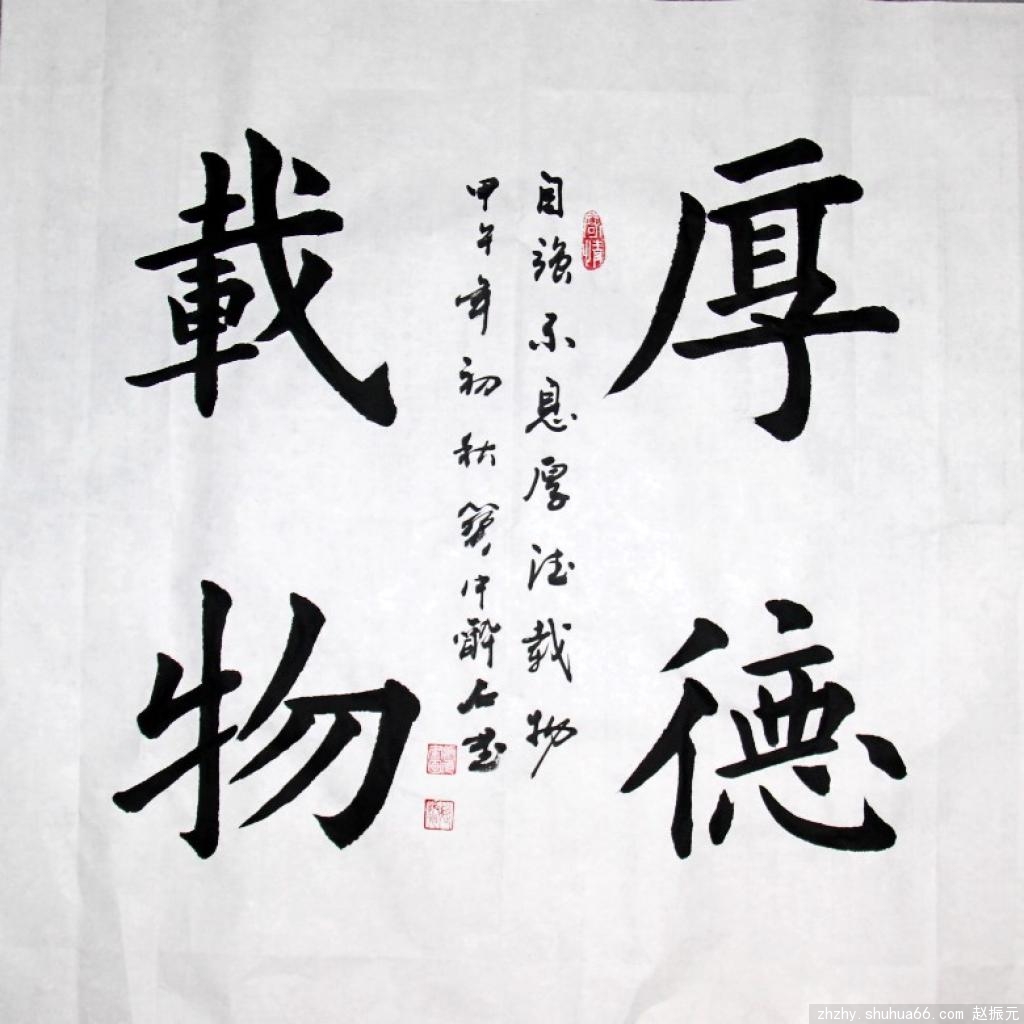 厚德
載物
自強不息厚德載物
甲午年初秋 中醉石書
zhzhy.shuhua66.com 赵振元